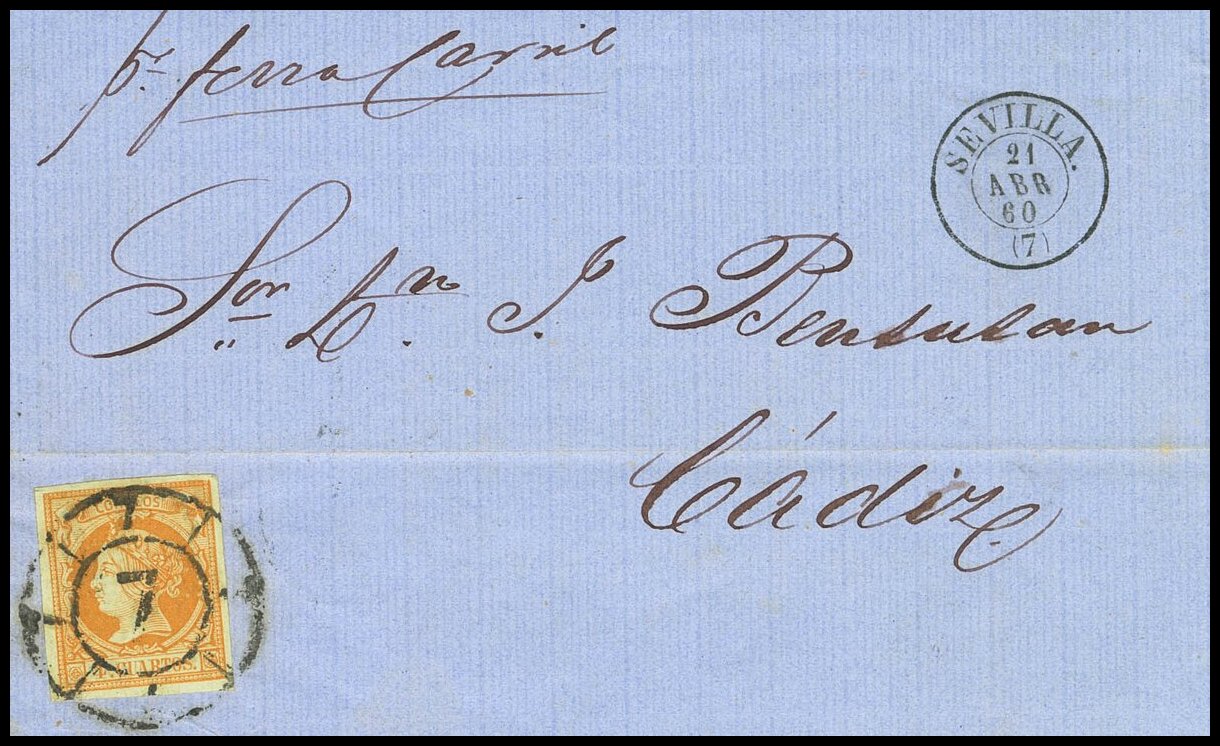 pr ferro Carril
SEVILLA.
21
ABR
60
(7)
Sor Dn J. Bensusan
Cádiz.
CORREOS
7
4 CUARTOS.